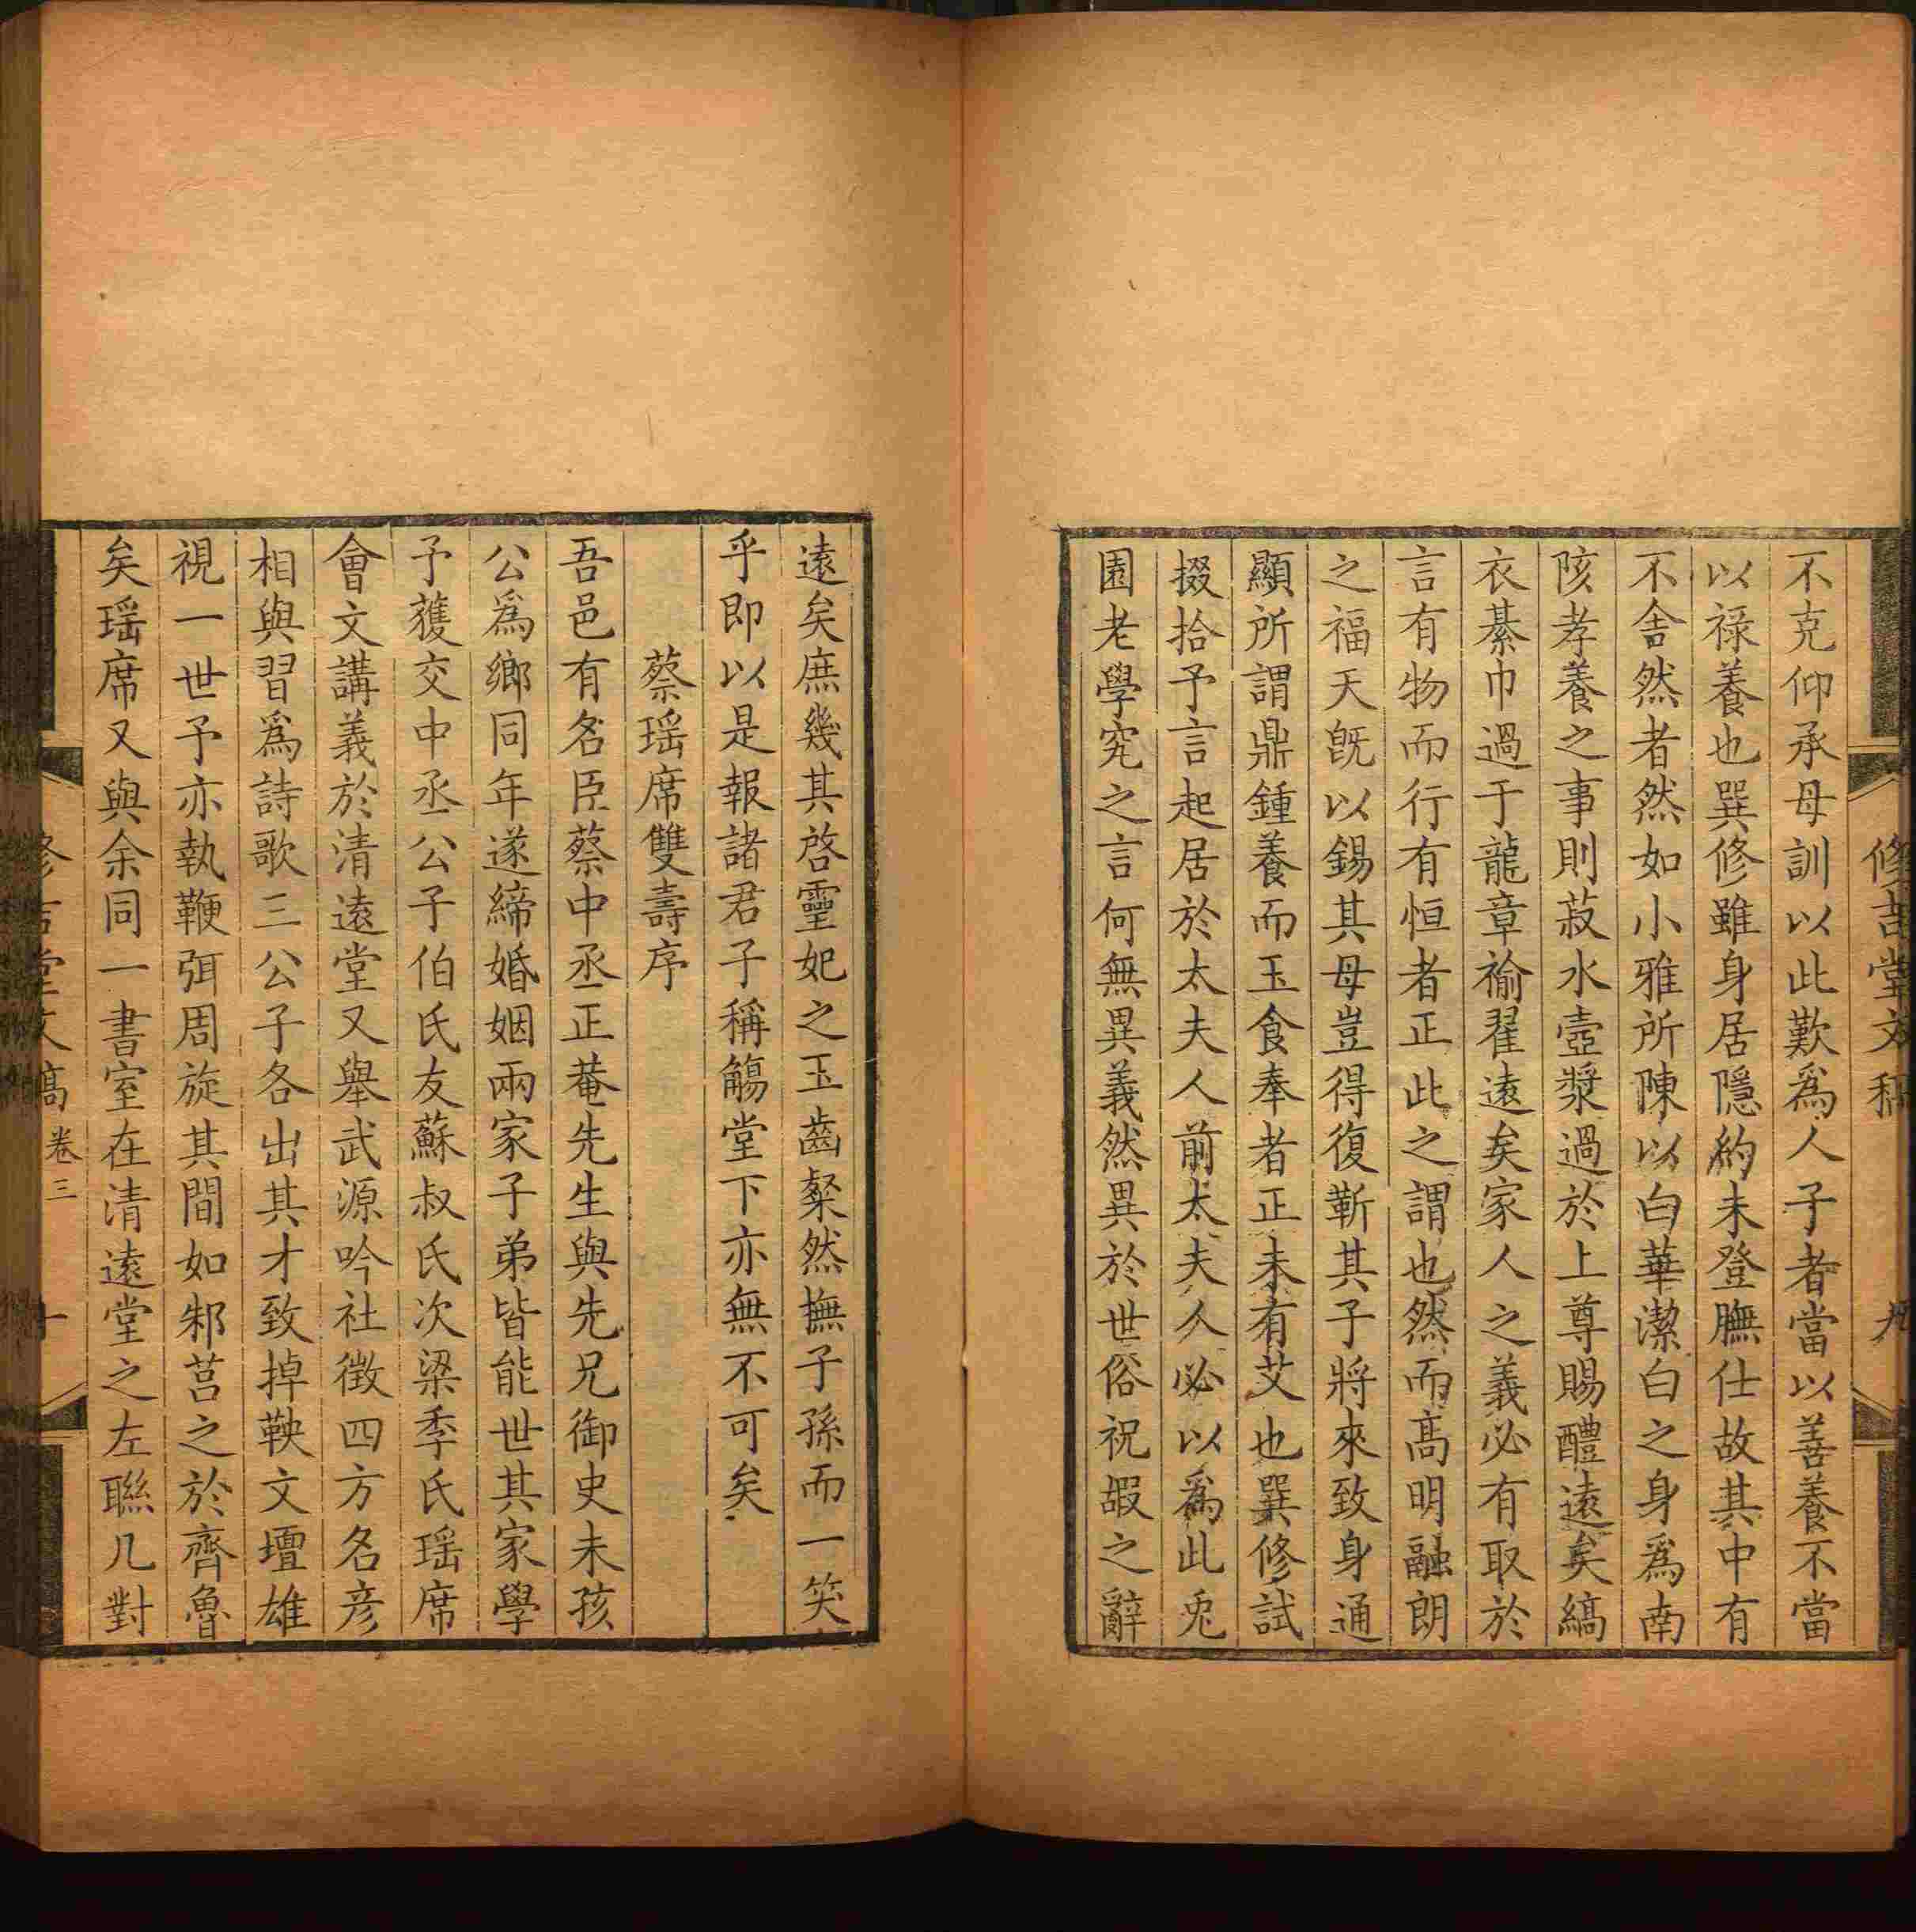 修吉堂文稿
九
不克仰承母訓以此歎爲人子者當以善養不當
以祿養也巽修雖身居隱約未登膴仕故其中有
不舍然者然如小雅所陳以白華潔白之身爲南
陔孝養之事則菽水壺漿過於上尊賜醴遠矣縞
衣綦巾過于龍章褕翟遠矣家人之義必有取於
言有物而行有恒者正此之謂也然而高明融朗
之福天旣以錫其母豈得復靳其子將來致身通
顯所謂鼎鍾養而玉食奉者正未有艾也巽修試
掇拾予言起居於太夫人前太夫人必以爲此兎
園老學究之言何無異義然異於世俗祝嘏之辭
遠矣庶幾其啓靈妃之玉齒粲然撫子孫而一笑
乎即以是報諸君子稱觴堂下亦無不可矣
蔡瑶席雙壽序
吾邑有名臣蔡中丞正菴先生與先兄御史未孩
公爲鄉同年遂締婚姻兩家子弟皆能世其家學
予獲交中丞公子伯氏友蘇叔氏次梁季氏瑶席
會文講義於清遠堂又舉武源吟社徵四方名彦
相與習爲詩歌三公子各出其才致掉鞅文壇雄
視一世予亦執鞭弭周旋其間如邾莒之於齊魯
矣瑶席又與余同一書室在清遠堂之左聯几對
修吉堂文稿 卷三
十